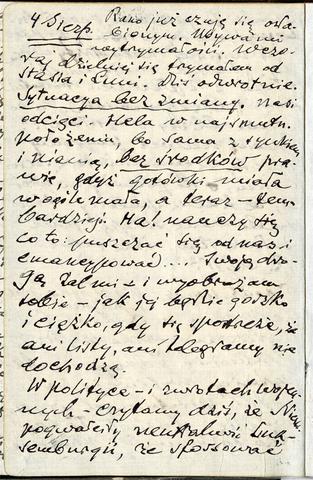 4 Sierp. Rano już czuję się osła-
bionym. Ubywa mi
wytrzymałości. Wczo-
raj dzielniej się trzymałem od
Stasia i Luni. Dziś odwrotnie.
Sytuacja bez zmiany. Nasi
odcięci. Hela w najsmutn.
położeniu, bo sama z synkiem
i nianią, bez środków pra-
wie, gdyż gotówki miała
wogóle mało, a teraz – tem-
bardziej. Ha! nauczy się
co to: puszczać się od nas i
emancypować... Swoją dro-
gą żal mi – i wyobrażam
sobie – jak jej będzie gorzko
i ciężko, gdy się spostrzeże, że
ani listy, ani telegramy nie
dochodzą.
W polityce – i zwrotach wojen-
nych – czytamy dziś, że Niem.
pogwałcili neutralność Luk-
semburgii, że stosować